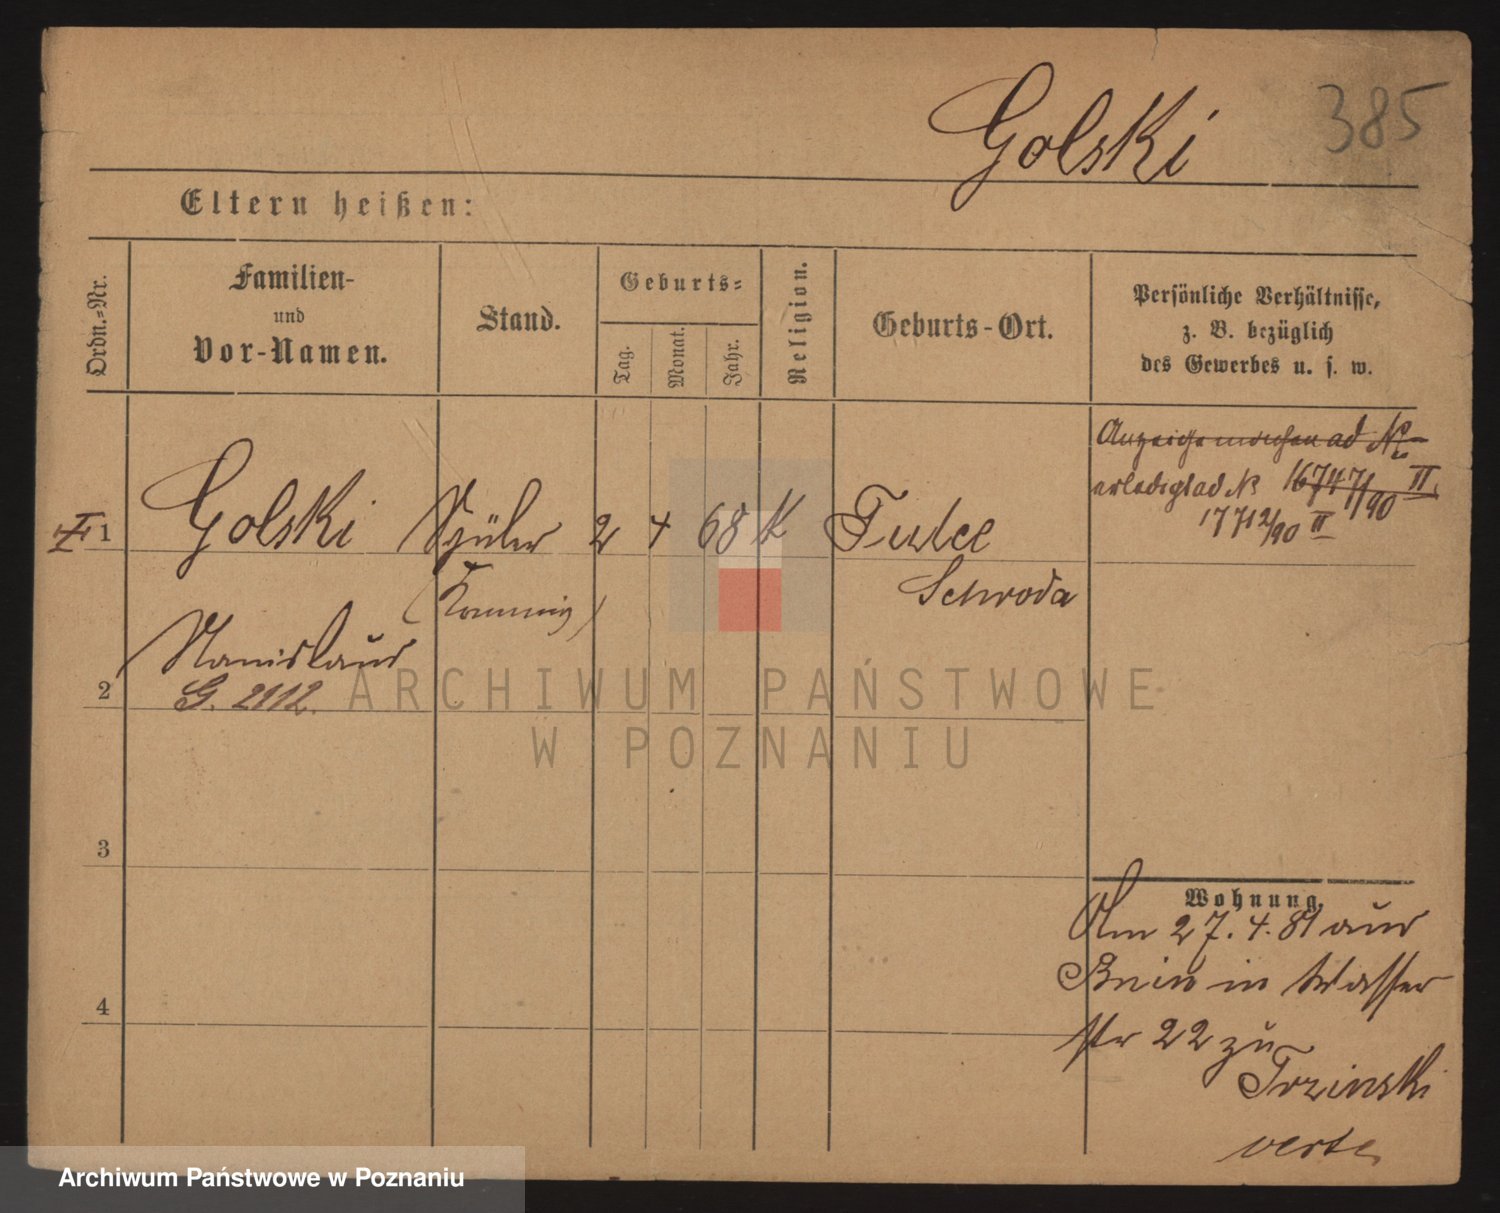 Golski
385
Eltern heißen:
Ordn.-Nr.
Familien-
und
Vor-Namen.
Stand.
Geburts-
Tag.
Monat.
Jahr.
Religion.
Geburts-Ort.
Persönliche Verhältnisse,
z. B. bezüglich
des Gewerbes u. s. w.
ad No
erledigt ad No 16747/90 II
17712/90 II
1 Golski Schüler 2 4 68 K Tulce
Schroda
Stanislaus
2 G. 2112.
ARCHIWUM PAŃSTWOWE
W POZNANIU
3
4
Wohnung.
Am 27.4.81 aus
Bnin in Wasser
str 22 zu
Trzinski
verte
Archiwum Państwowe w Poznaniu